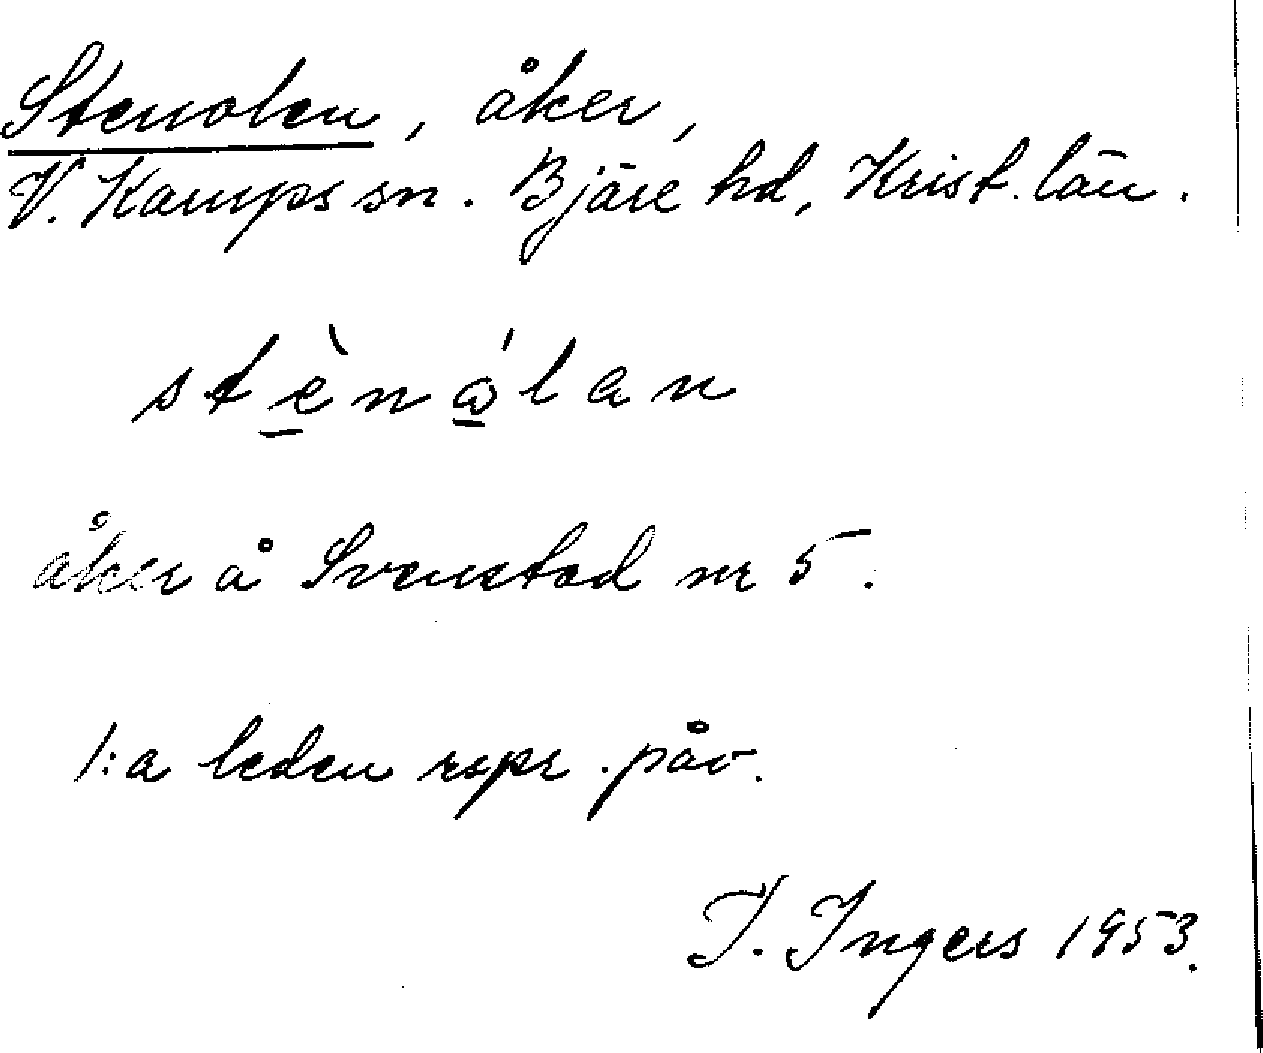 Stenolen, åker,
V. Karups sn. Bjäre hd, Krist. län.
stènálan
åker å Svenstad nr 5.
1:a leden repr. påv.
I. Ingers 1953.